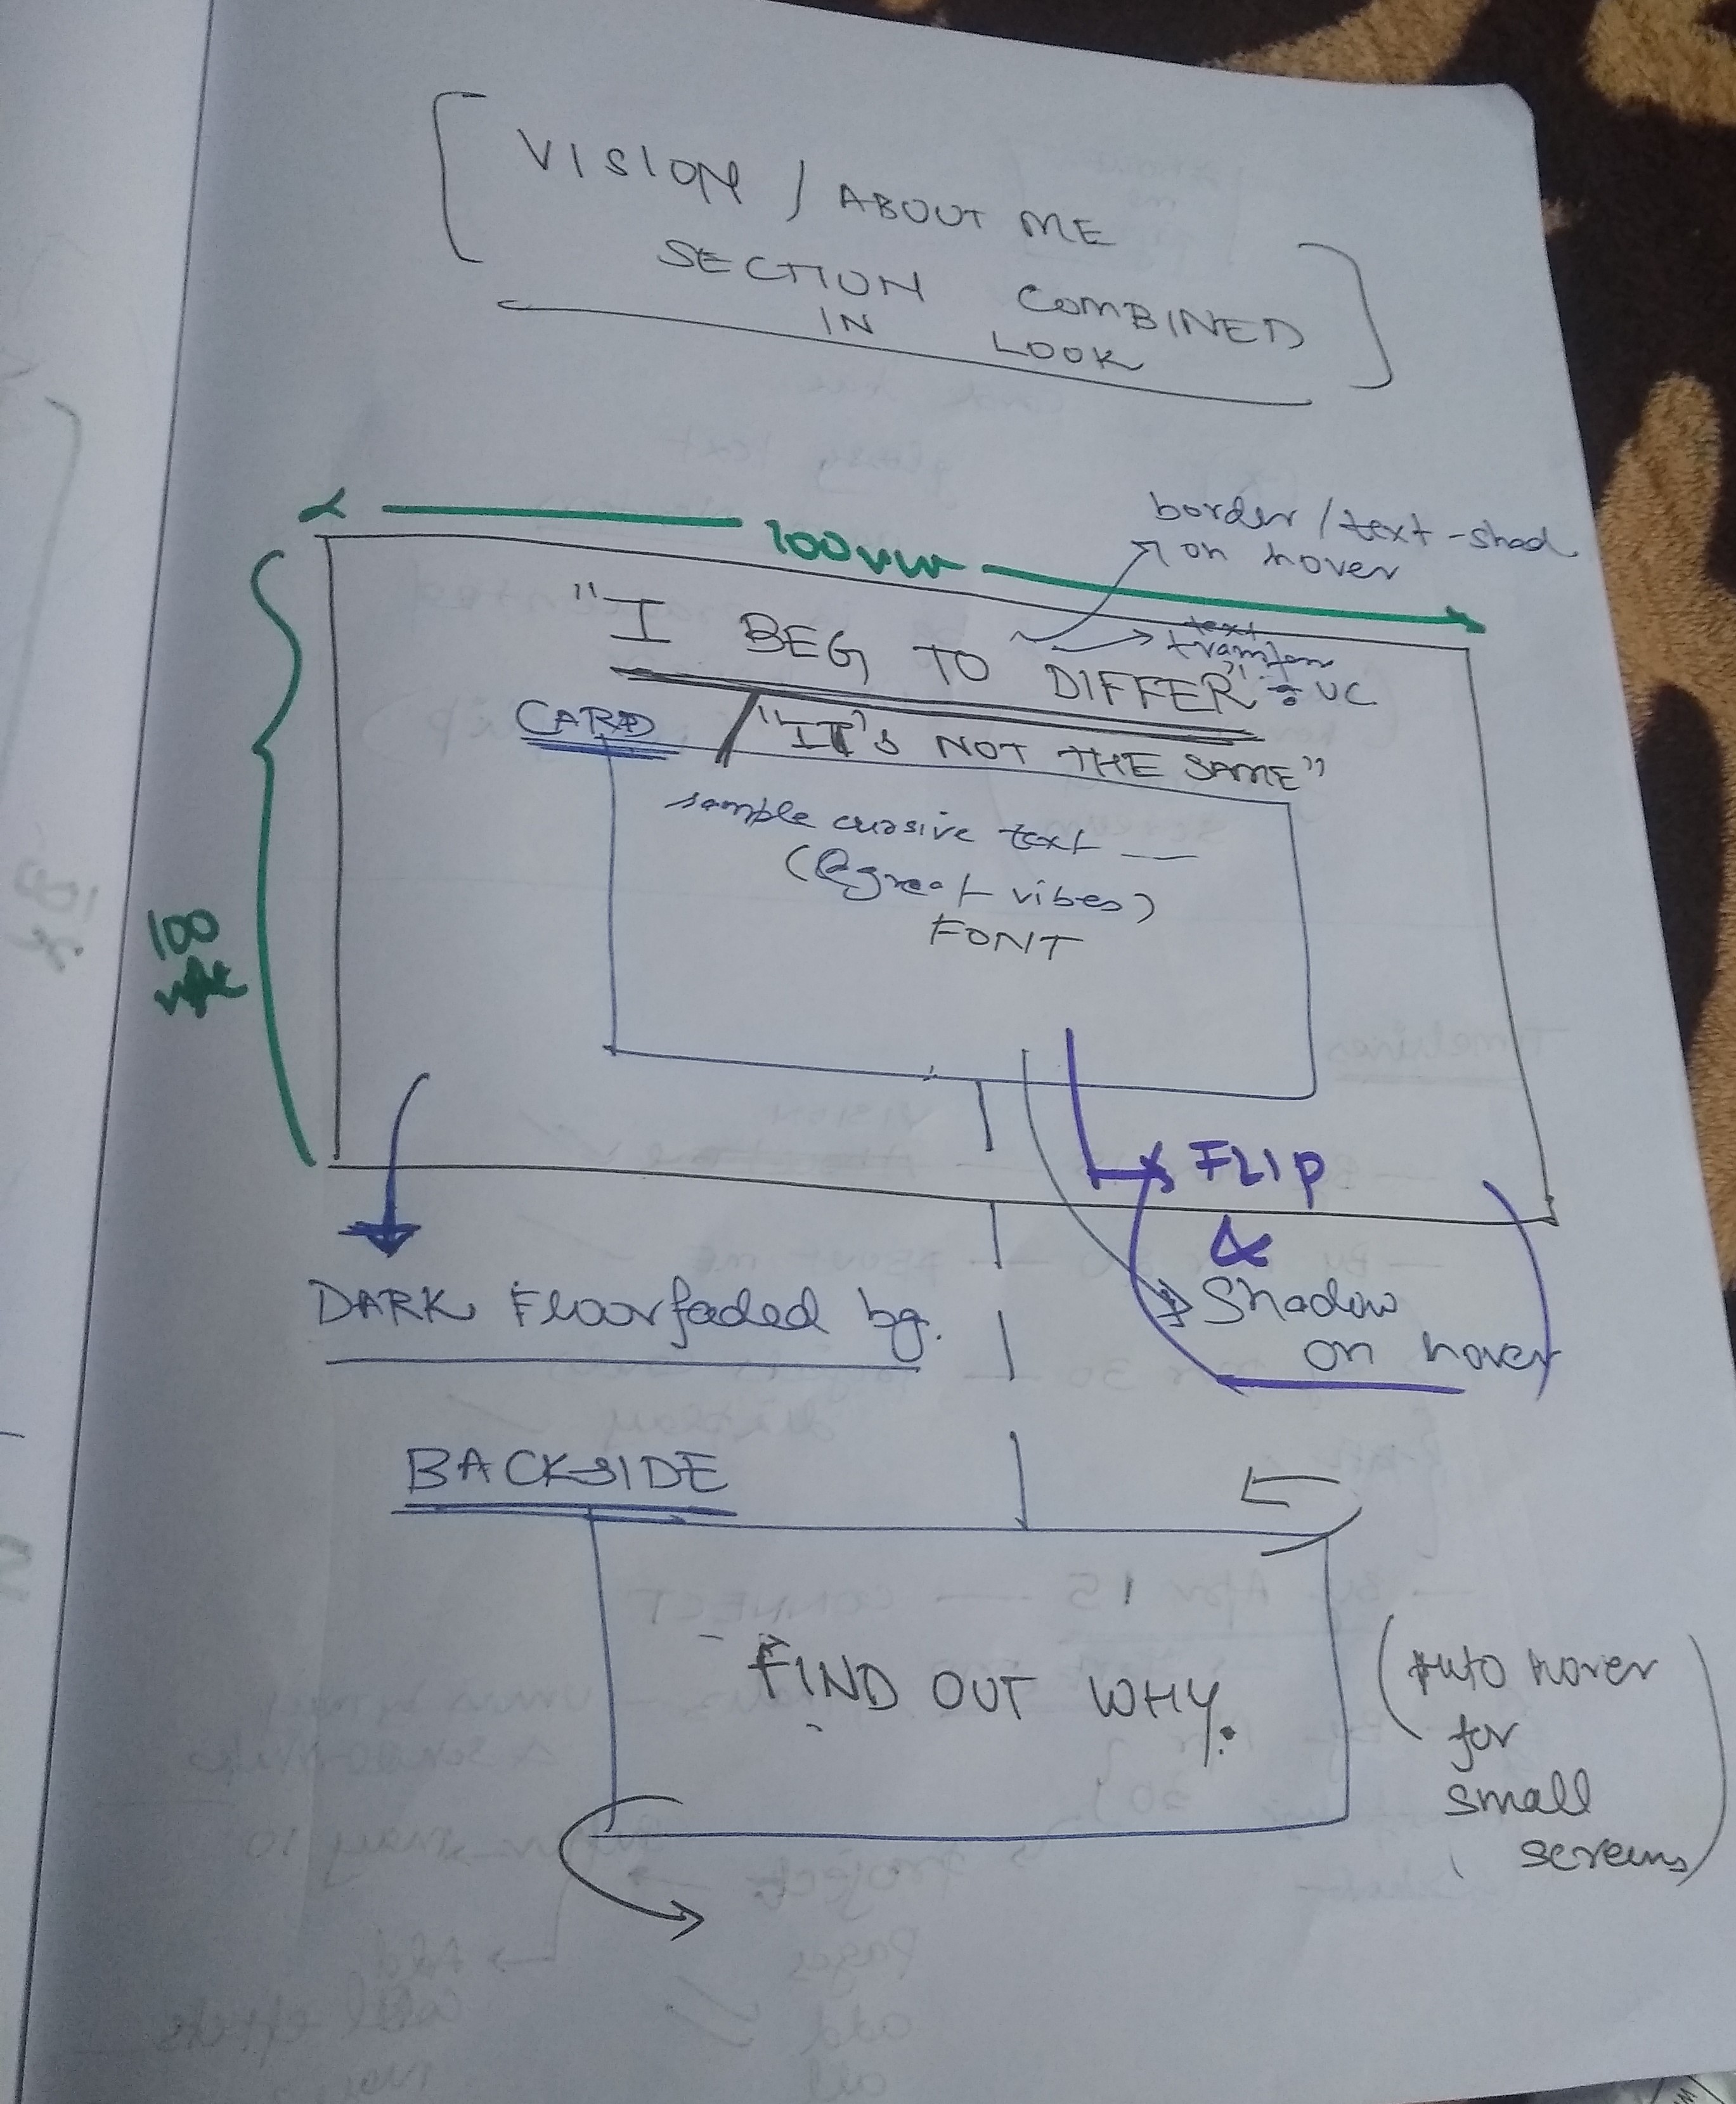 VISION / ABOUT ME
SECTION COMBINED
IN LOOK
100vw
border / text-shad
on hover
"I BEG TO DIFFER" : UC
text
CARD
"IT's NOT THE SAME"
sample cursive text —
(great vibes)
FONT
100
FLIP
&
Shadow
on hover
DARK Floor faded bg.
BACKSIDE
FIND OUT WHY.
(Auto hover
for
small
screens)